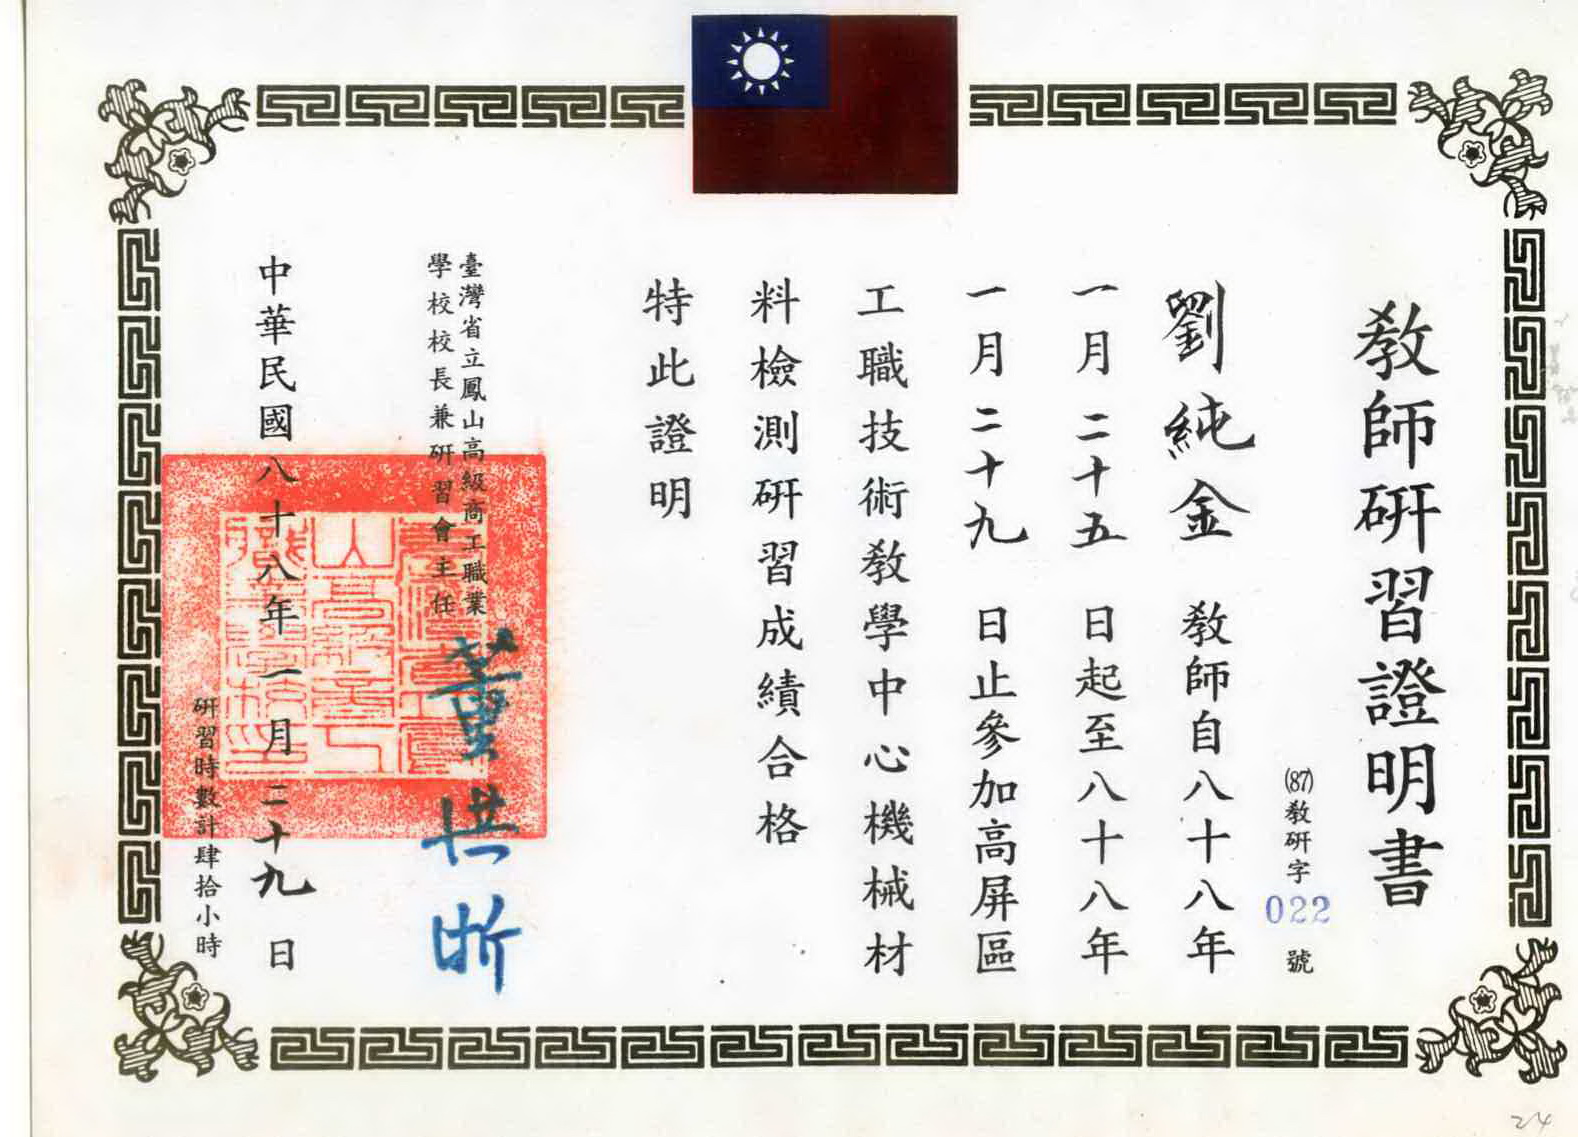 教師研習證明書
(87)教研字022號
劉純金 教師自八十八年
一月二十五 日起至八十八年
一月二十九 日止參加高屏區
工職技術教學中心機械材
料檢測研習成績合格
特此證明
臺灣省立鳳山高級商工職業
學校校長兼研習會主任
董拱昕
中華民國八十八年一月二十九日
研習時數計肆拾小時
24